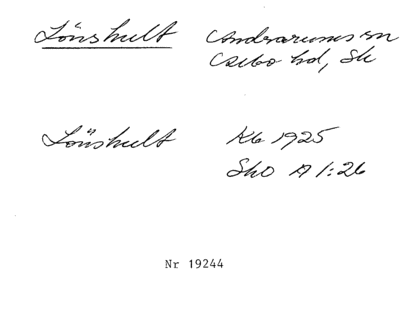 Lönshult Andrarums sn
Albo hd, Sk
Lönshult Kb 1925
SkO A 1:26
Nr 19244